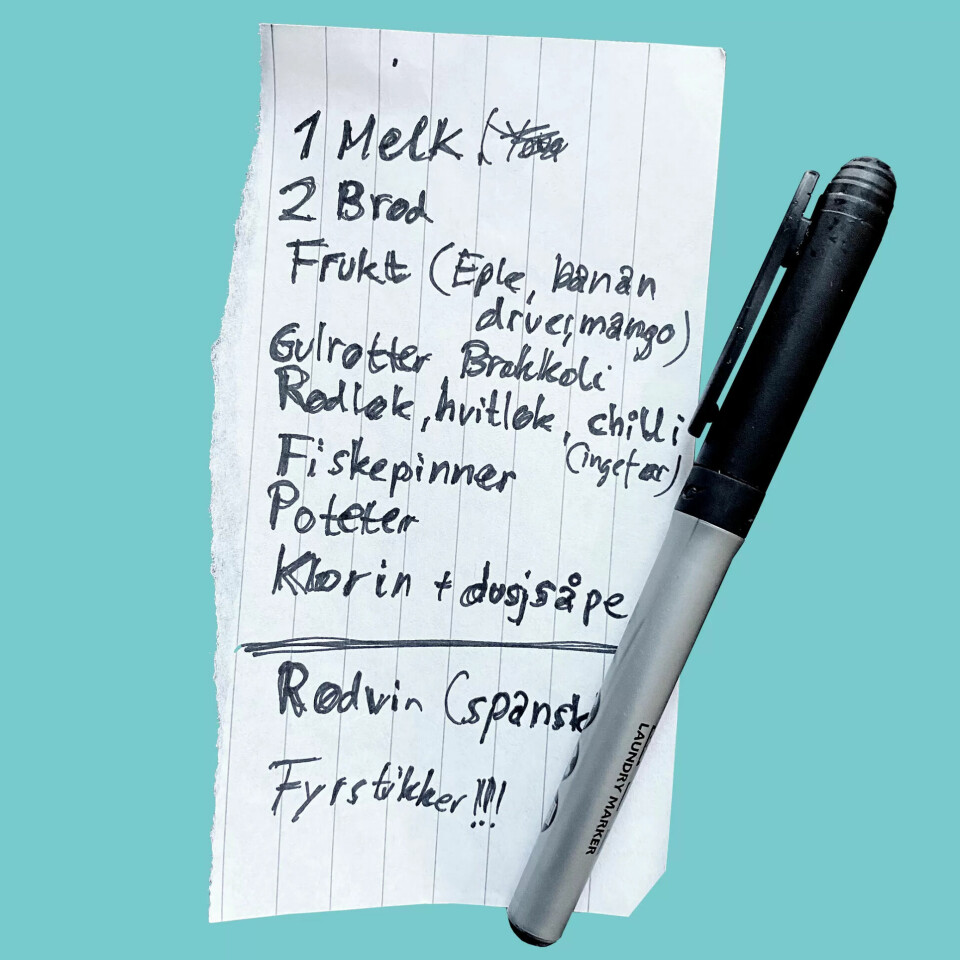 1 Melk (
2 Brød
Frukt (Eple, banan
druer, mango)
Gulrøtter Brokkoli
Rødløk, hvitløk, chilli
(ingefær)
Fiskepinner
Poteter
Klorin + dusjsåpe
Rødvin (spansk
Fyrstikker!!!
LAUNDRY MARKER